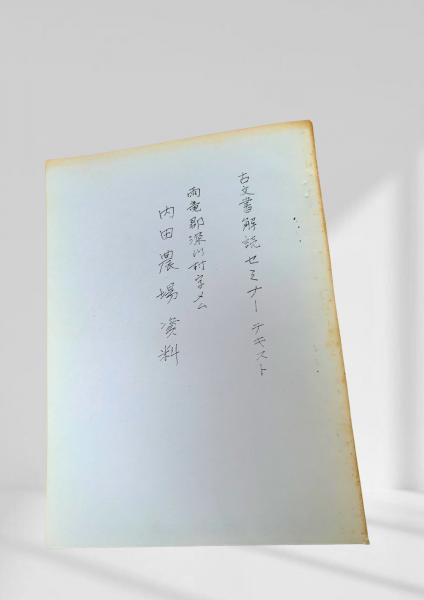 古文書解読セミナーテキスト
雨竜郡深川村字メム
内田農場資料